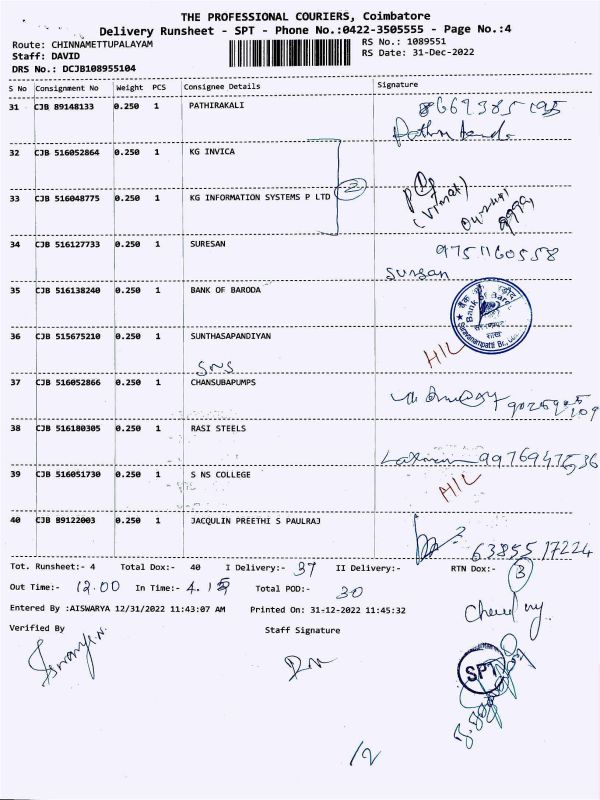 THE PROFESSIONAL COURIERS, Coimbatore
Delivery Runsheet - SPT - Phone No.:0422-3505555 - Page No.:4
Route: CHINNAMETTUPALAYAM RS No.: 1089551
Staff: DAVID RS Date: 31-Dec-2022
DRS No.: DCJB108955104
S No Consignment No Weight PCS Consignee Details Signature
31 CJB 89148133 0.250 1 PATHIRAKALI
32 CJB 516052864 0.250 1 KG INVICA
33 CJB 516048775 0.250 1 KG INFORMATION SYSTEMS P LTD 2
34 CJB 516127733 0.250 1 SURESAN 9751160558
35 CJB 516138240 0.250 1 BANK OF BARODA
36 CJB 515675210 0.250 1 SUNTHASAPANDIYAN H/L
SNS
37 CJB 516052866 0.250 1 CHANSUBAPUMPS
38 CJB 516180305 0.250 1 RASI STEELS
39 CJB 516051730 0.250 1 S NS COLLEGE H/L
40 CJB 89122003 0.250 1 JACQULIN PREETHI S PAULRAJ 6385517224
Tot. Runsheet:- 4 Total Dox:- 40 I Delivery:- 37 II Delivery:- RTN Dox:- 3
Out Time:- 12.00 In Time:- Total POD:- 30
Entered By :AISWARYA 12/31/2022 11:43:07 AM Printed On: 31-12-2022 11:45:32
Verified By Staff Signature
SPT
12